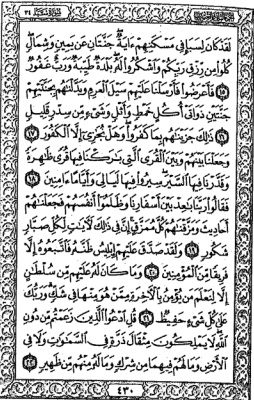 لَقَدْ كَانَ لِسَبَإٍ فِى مَسْكَنِهِمْ ءَايَةٌ جَنَّتَانِ عَن يَمِينٍ وَشِمَالٍ
كُلُوا۟ مِن رِّزْقِ رَبِّكُمْ وَٱشْكُرُوا۟ لَهُۥ بَلْدَةٌ طَيِّبَةٌ وَرَبٌّ غَفُورٌ
١٥ فَأَعْرَضُوا۟ فَأَرْسَلْنَا عَلَيْهِمْ سَيْلَ ٱلْعَرِمِ وَبَدَّلْنَٰهُم بِجَنَّتَيْهِمْ
جَنَّتَيْنِ ذَوَاتَىْ أُكُلٍ خَمْطٍ وَأَثْلٍ وَشَىْءٍ مِّن سِدْرٍ قَلِيلٍ
١٦ ذَٰلِكَ جَزَيْنَٰهُم بِمَا كَفَرُوا۟ وَهَلْ نُجَٰزِىٓ إِلَّا ٱلْكَفُورَ ١٧
وَجَعَلْنَا بَيْنَهُمْ وَبَيْنَ ٱلْقُرَى ٱلَّتِى بَٰرَكْنَا فِيهَا قُرًى ظَٰهِرَةً
وَقَدَّرْنَا فِيهَا ٱلسَّيْرَ سِيرُوا۟ فِيهَا لَيَالِىَ وَأَيَّامًا ءَامِنِينَ ١٨
فَقَالُوا۟ رَبَّنَا بَٰعِدْ بَيْنَ أَسْفَارِنَا وَظَلَمُوٓا۟ أَنفُسَهُمْ فَجَعَلْنَٰهُمْ
أَحَادِيثَ وَمَزَّقْنَٰهُمْ كُلَّ مُمَزَّقٍ إِنَّ فِى ذَٰلِكَ لَءَايَٰتٍ لِّكُلِّ صَبَّارٍ
شَكُورٍ ١٩ وَلَقَدْ صَدَّقَ عَلَيْهِمْ إِبْلِيسُ ظَنَّهُۥ فَٱتَّبَعُوهُ إِلَّا
فَرِيقًا مِّنَ ٱلْمُؤْمِنِينَ ٢٠ وَمَا كَانَ لَهُۥ عَلَيْهِم مِّن سُلْطَٰنٍ
إِلَّا لِنَعْلَمَ مَن يُؤْمِنُ بِٱلْءَاخِرَةِ مِمَّنْ هُوَ مِنْهَا فِى شَكٍّ وَرَبُّكَ
عَلَىٰ كُلِّ شَىْءٍ حَفِيظٌ ٢١ قُلِ ٱدْعُوا۟ ٱلَّذِينَ زَعَمْتُم مِّن دُونِ
ٱللَّهِ لَا يَمْلِكُونَ مِثْقَالَ ذَرَّةٍ فِى ٱلسَّمَٰوَٰتِ وَلَا فِى
ٱلْأَرْضِ وَمَا لَهُمْ فِيهِمَا مِن شِرْكٍ وَمَا لَهُۥ مِنْهُم مِّن ظَهِيرٍ ٢٢
٤٣٠